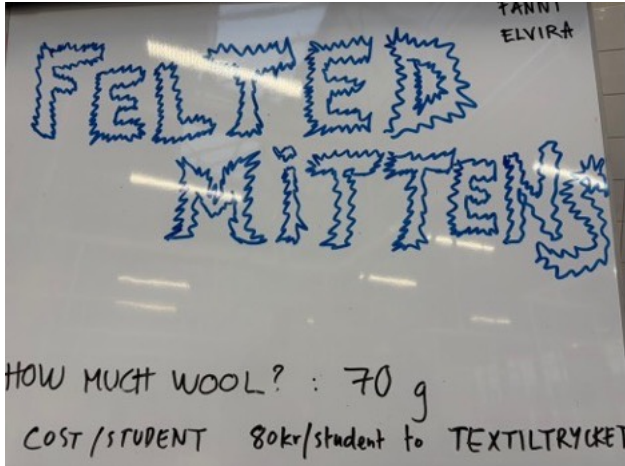 FANNY
ELVIRA
FELTED
MiTTENS
HOW MUCH WOOL? : 70 g
COST/STUDENT 80kr/student to TEXTILTRYCKET